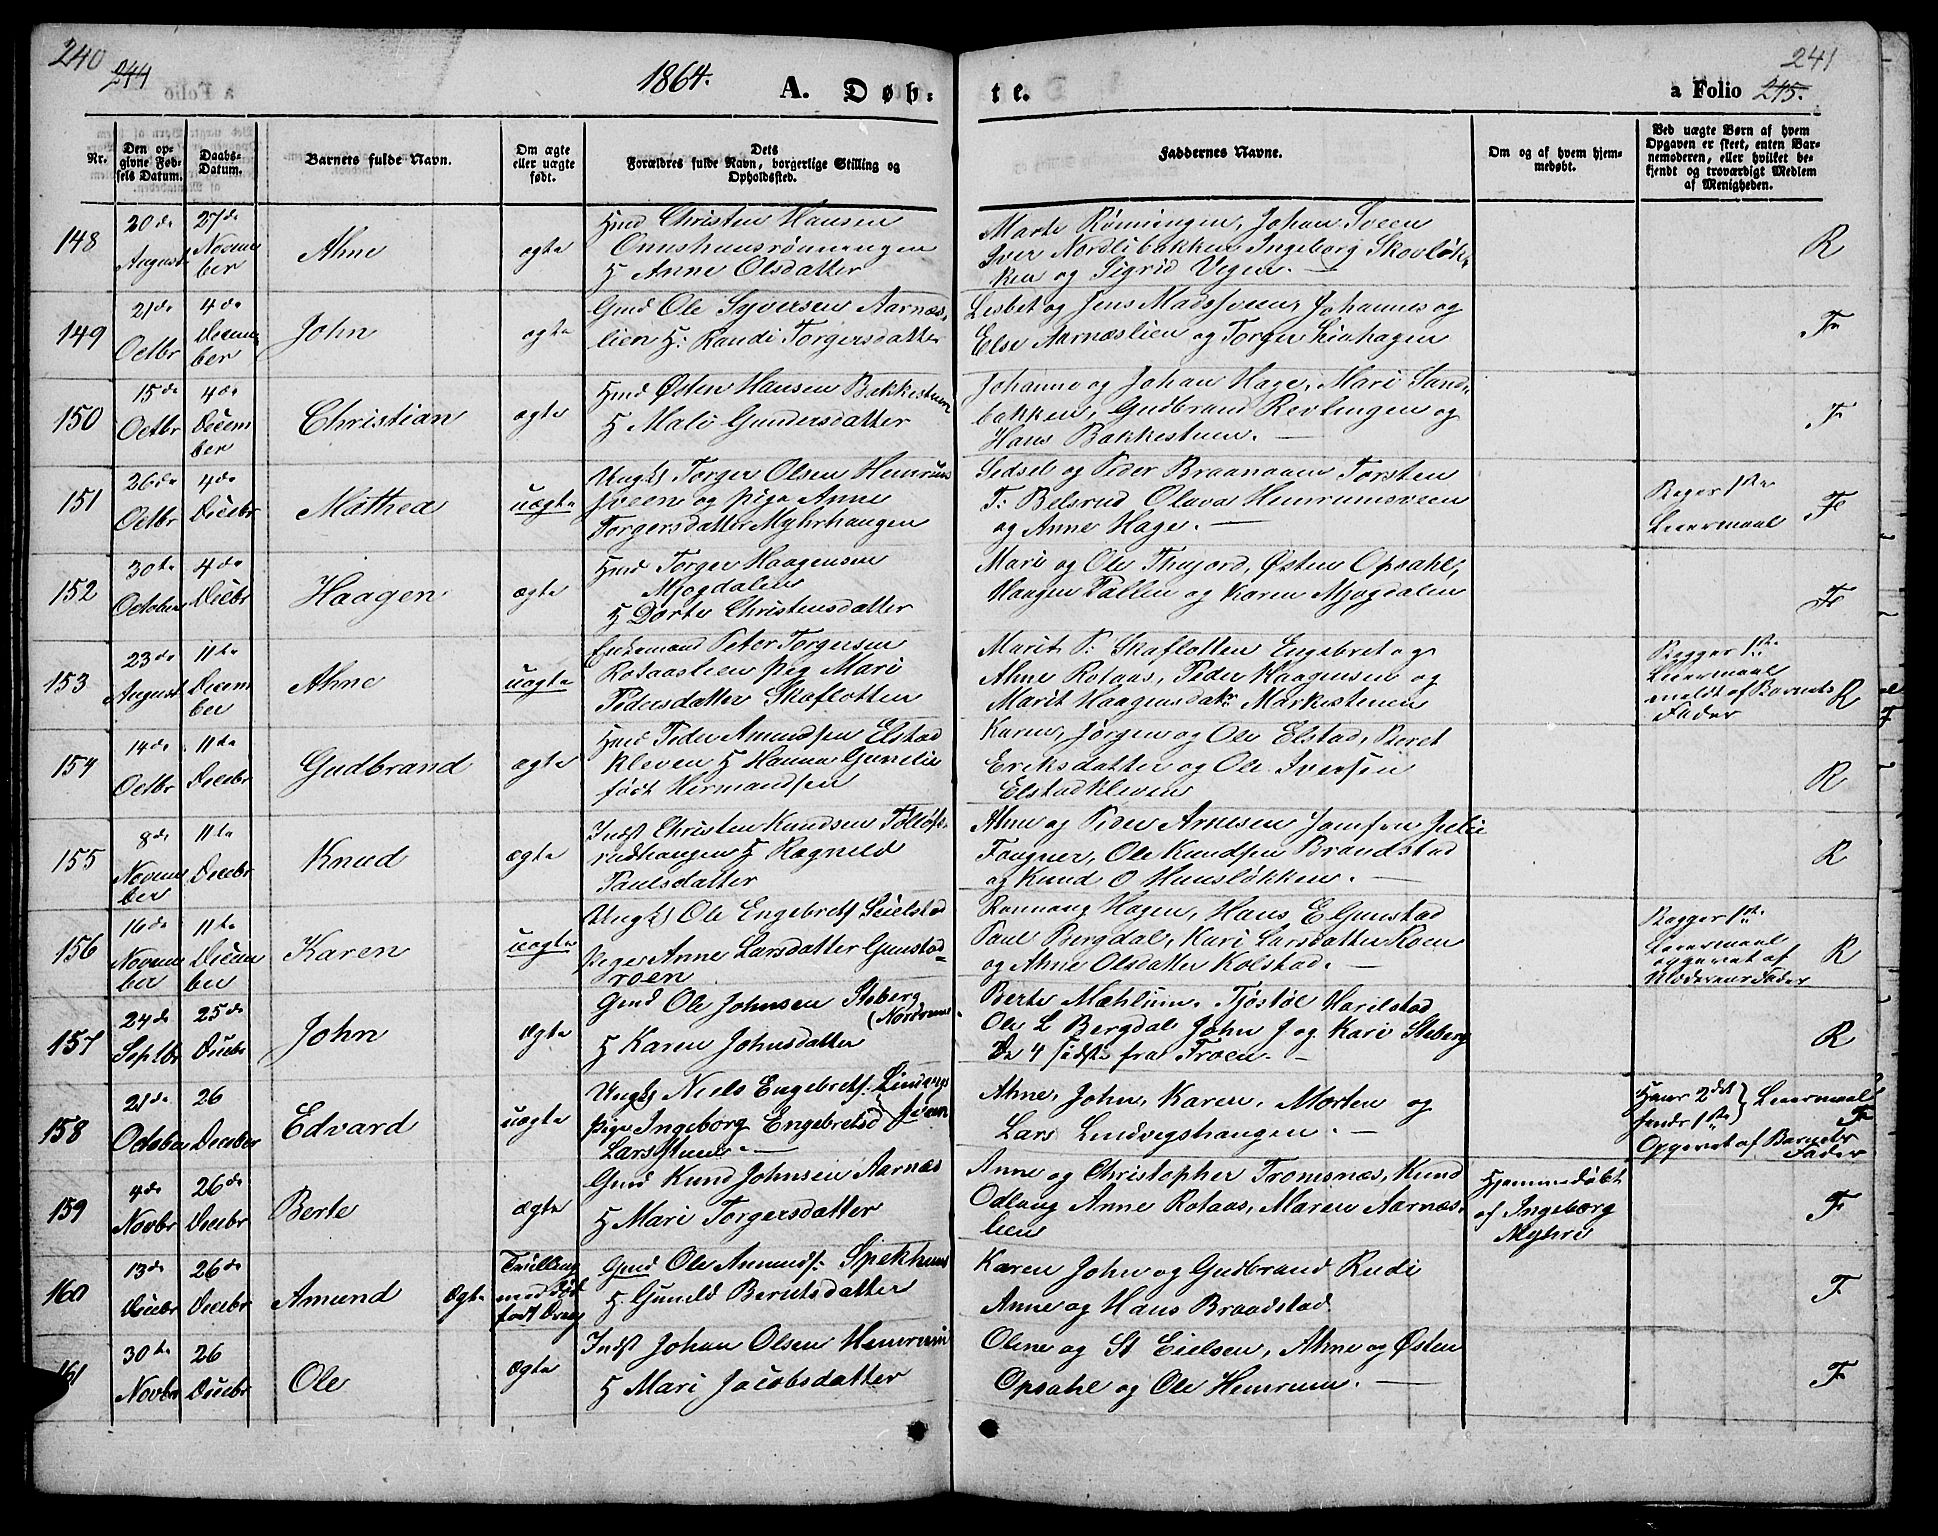 240 244 1864. A. Døb- te. a Folio 245. 241
Nr.
Den opgivne Fødsels Datum.
Daabs-Datum.
Barnets fulde Navn.
Om ægte eller uægte født.
Dets Forældres fulde Navn, borgerlige Stilling og Opholdssted.
Faddernes Navne.
Om og af hvem hjemmedøbt.
Ved uægte Børn af hvem Opgaven er skeet, enten Barnemoderen, eller hvilket bekjendt og troværdigt Medlem af Menigheden.
148 20de August 27de November Ahne ægte
Hmd Christen Hansen
Onnshuusrønningen
H Anne Olsdatter
Marte Rønningen, Johan Sveen
Iver Nordlibakken Ingeborg Skovløk-
ken og Sigrid Vegen. R
149 21de Octbr 4de December John ægte
Gmd Ole Syversen Aarnæs-
lien H: Randi Torgersdatter
Lisbet og Jens Madssveen, Johannes og
Else Aarnæslien og Torger Liahagen Fr
150 15de Octbr 4de December Christian ægte
Hmd Østen Hansen Bakkestuen
H Mali Gundersdatter
Johanne og Johan Hage, Mari Sand-
bakken, Gudbrand Revlingen og
Hans Bakkestuen. F
151 26de Octbr 4de Decebr Mathea uægte
Ungk Torger Olsen Hemrum
sveen og pige Anne
Torgersdatter Myhrhaugen
Sidsel og Peder Braanaaen Torsten
T: Belsrud Olava Hemrumsveen
og Anne Hage.
Begges 1ste
Leiermaal Fr
152 30te October 4de Decbr Haagen ægte
Hmd Torger Haagensen
Mjogdalen
H Dorte Christensdatter
Mari og Ole Thujord, Østen Opsahl,
Haagen Pallen og Karen Mjogdalen Fr
153 23de August 11te December Ahne uægte
Enkemand Peter Torgersen
Rotaaslien pig Mari
Pedersdatter Skaflotten
Marit P: Skaflotten Engebret og
Ahne Rotaas, Peder Haagensen og
Marit Haagensdatr: Markestuen
Begges 1ste
Leiermaal
meldt af Barnets
Fader R
154 14de Octbr 11te Decebr Gudbrand ægte
Hmd Peder Amundsen Elstad
kleven H Hanna Gunelie
født Hermandsen
Karen, Jørgen og Ole Elstad, Beret
Eriksdatter og Ole Iversen
Elstadkleven R
155 8de November 11te Decebr Knud ægte
Indst Christen Knudsen Tollofs-
rudhaugen H Ragnild
Paulsdatter
Ahne og Peder Arnesen Jomfru Julie
Faugner, Ole Knudsen Brandstad
og Knud O Huusløkken. R
156 16de November 11te December Karen uægte
Ungk Ole Engebrets Seielstad
pige Anne Larsdatter Gunstad-
roen
Rønnaug Hagen, Hans E Gunstad
Paul Bergdal, Kari Larsdatter Roen
og Ahne Olsdatter Kolstad.
Begges 1ste
Leiermaal
opgivet af
Moderens Fader R
157 24de Septbr 25de Decbr John Ægte
Gmd Ole Johnsen Steberg
(Nordrum
H Karen Johnsdatter
Berte Mæhlum, Tjøstøl Harilstad
Ole L Bergdal John J og Kari Steberg
De 4 sidste fra Froen. R
158 21de October 26 December Edvard uægte
Ungk Niels Engebrets: Lindvigs
sveen
pige Ingeborg Engebretsd
Larsstuen.
Ahne, John, Karen, Morten og
Lars Lindvigshaugen.
Hans 2det
hendes 1ste } Leiermaal
Opgivet af Barnets
Fader Fr
159 4de Novbr 26de Decebr Berte ægte
Gmd Knud Johnsen Aarnæs
H Mari Torgersdatter
Anne og Christopher Tromsnæs, Knud
Odlaug Anne Rotaas, Maren Aarnæs-
lien
Hjemmedøbt
af Ingeborg
Myhre F
160 13de Decbr 26de Decebr Amund Ægte
Tvilling
med Død
født Dreng
Gmd Ole Amunds: Spekhuus
H. Gunild Berntsdatter
Karen John og Gudbrand Rudi
Anne og Hans Braadstad F
161 30te Novbr 26 Decebr Ole Ægte
Indst Johan Olsen Hemrum
H Mari Jacobsdatter
Olene og St Eielsen, Ahne og Østen
Opsahl og Ole Hemrum. F